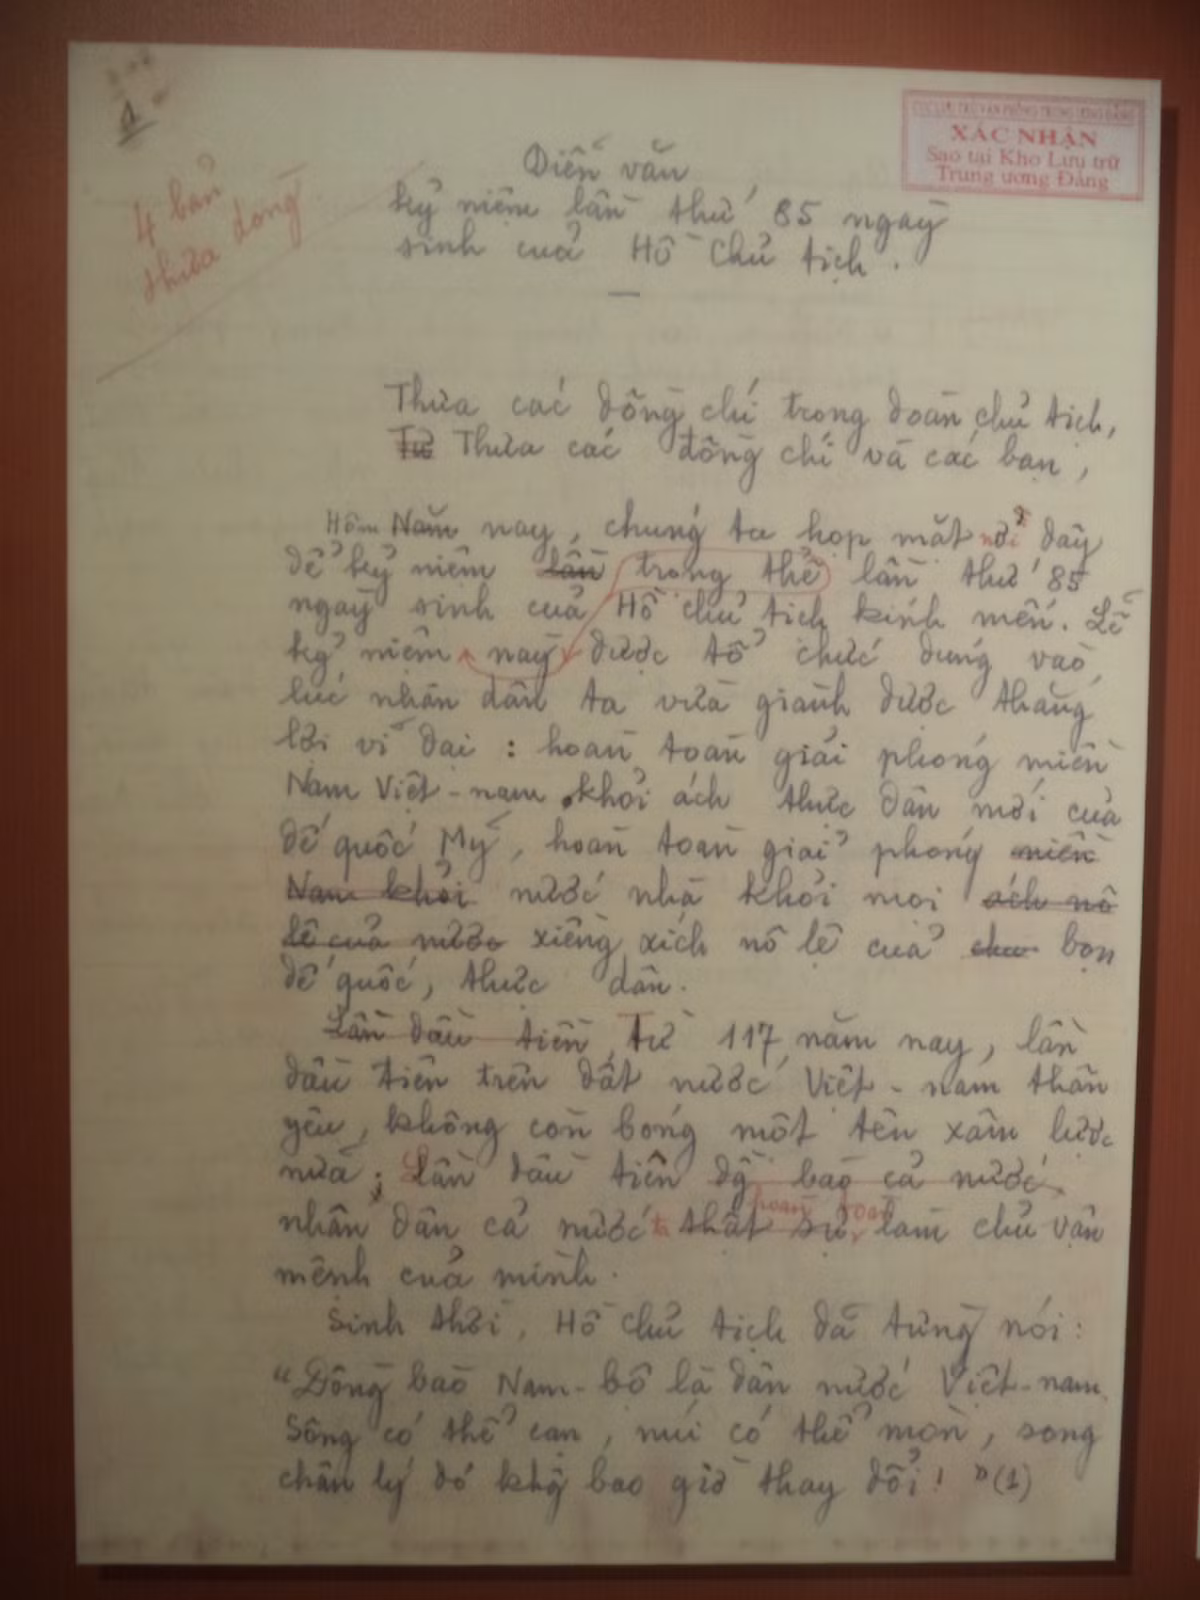 1
CỤC LƯU TRỮ VĂN PHÒNG TRUNG ƯƠNG ĐẢNG
XÁC NHẬN
Sao tại Kho Lưu trữ
Trung ương Đảng
4 bản
thừa dòng
Diễn văn
kỷ niệm lần thứ 85 ngày
sinh của Hồ Chủ tịch.
Thưa các đồng chí trong đoàn chủ tịch,
Từ Thưa các đồng chí và các bạn,
Hôm Năm nay, chúng ta họp mặt nơi ở đây
để kỷ niệm lần trọng thể lần thứ 85
ngày sinh của Hồ Chủ tịch kính mến. Lễ
kỷ niệm này được tổ chức đúng vào
lúc nhân dân ta vừa giành được thắng
lợi vĩ đại : hoàn toàn giải phóng miền
Nam Việt-nam khỏi ách thực dân mới của
đế quốc Mỹ, hoàn toàn giải phóng miền
Nam khỏi nước nhà khỏi mọi ách nô
lệ của nước xiềng xích nô lệ của bọn
đế quốc, thực dân.
Lần đầu tiên Từ 117 năm nay, lần
đầu tiên trên đất nước Việt-nam thân
yêu, không còn bóng một tên xâm lược
nữa; Lần đầu tiên đg bào cả nước
nhân dân cả nước ta thật sự hoàn toàn làm chủ vận
mệnh của mình.
Sinh thời, Hồ Chủ tịch đã từng nói:
"Đồng bào Nam-bộ là dân nước Việt-nam.
Sông có thể cạn, núi có thể mòn, song
chân lý đó khg bao giờ thay đổi! "(1)